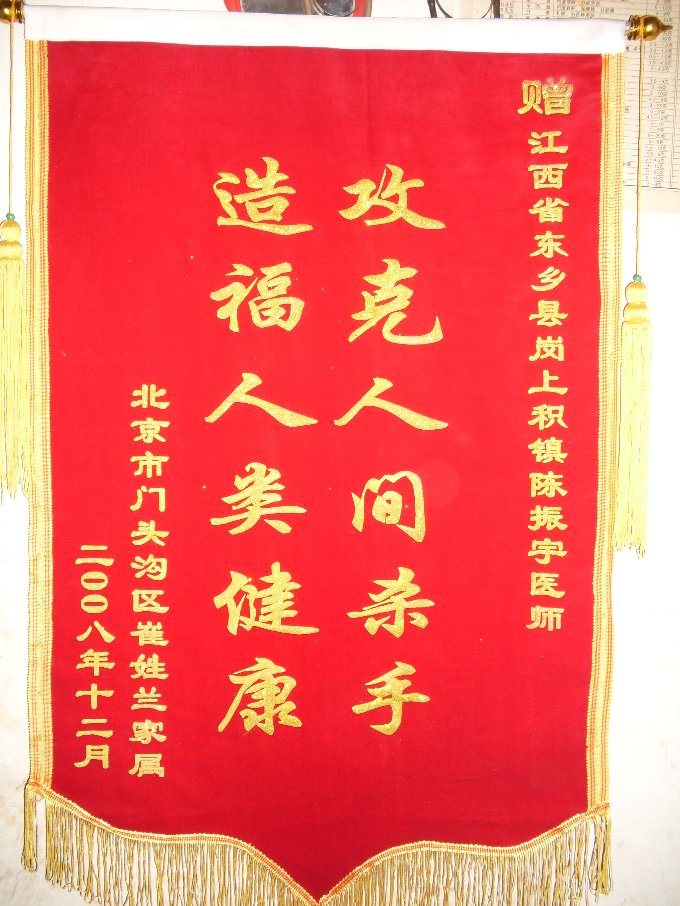 赠
江西省东乡县岗上积镇陈振宇医师
攻克人间杀手
造福人类健康
北京市门头沟区崔姓兰家属
二00八年十二月